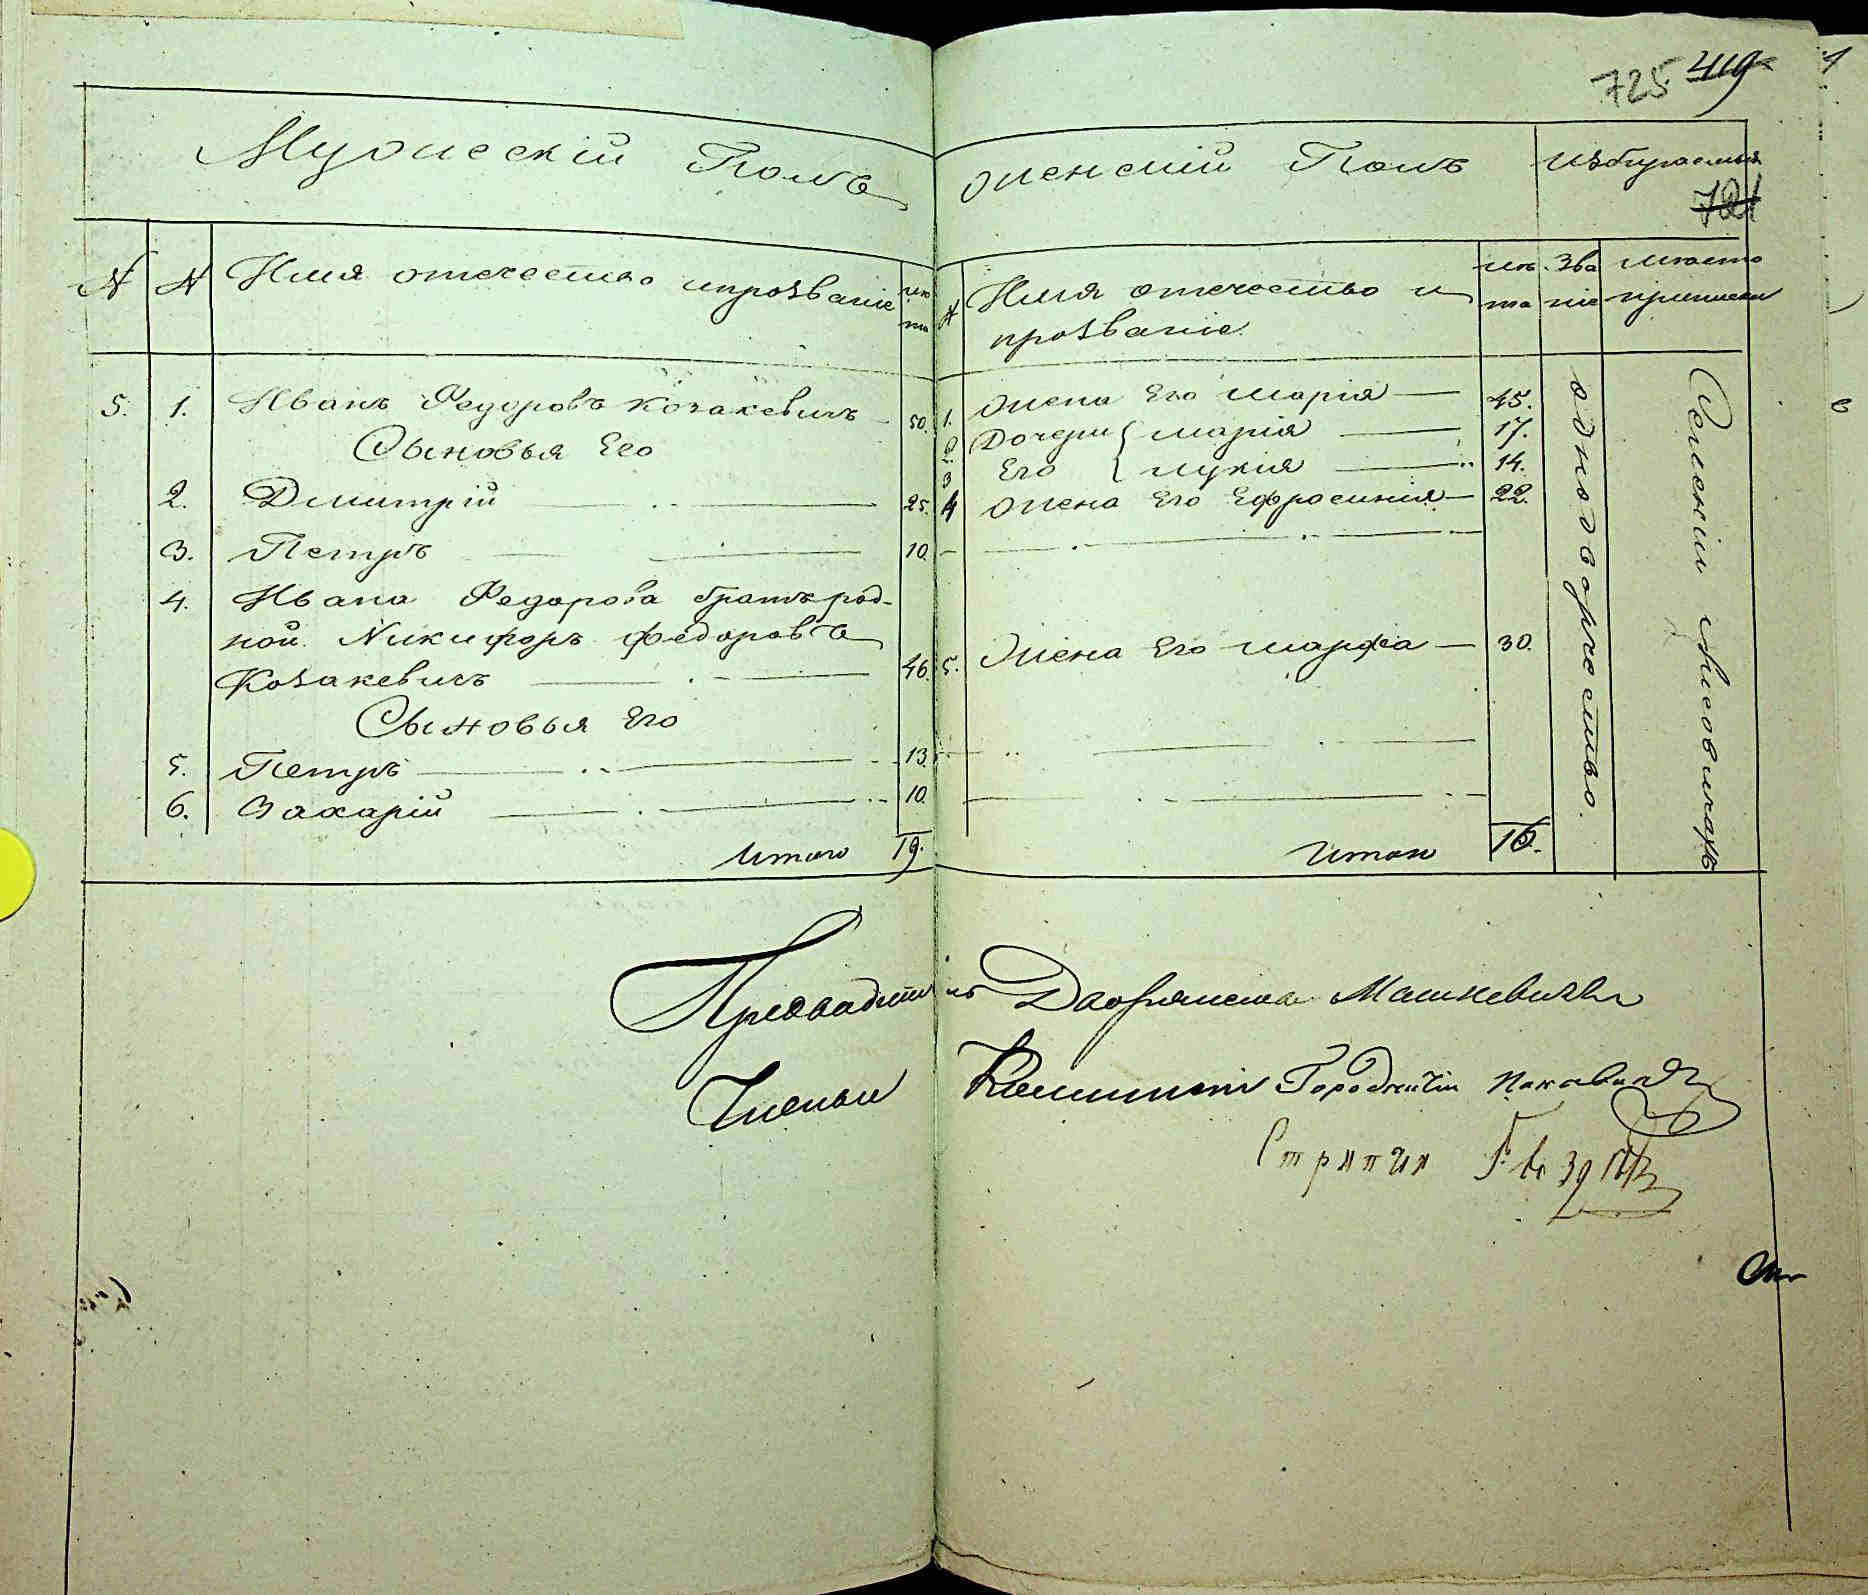 725 419
Мужескій Полъ
Женскій Полъ
Избираемыя
721
№ № Имя отечество и прозваніе лѣ
та
№ Имя отечество и
прозваніе
лѣ
та
Зва
ніе
мѣсто
приписки
5. 1. Иванъ Федоровъ Козакевичъ 50.
Сыновья Его
2. Дмитрій 25.
3. Петръ 10.
4. Ивана Федорова братъ род-
ной Никифоръ Федоровъ
Козакевичъ 46.
Сыновья Его
5. Петръ 13.
6. Захарій 10.
Итого 19.
1. Жена Его Марія 45.
2 Дочери Марія 17.
3 Его Лукія 14.
4 Жена Его Ефросинія 22.
5. Жена Его Марфа 30.
Итого 16.
однодворчество.
Селеніи Лисовичахъ
Предводитель Дворянства Машкевичъ
Члены
Городничій
Стряпчій